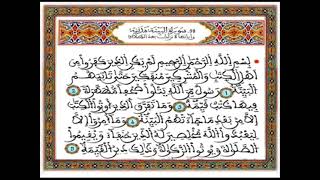 سورة البينة مدنية
بسم الله الرحمن الرحيم لم يكن الذين كفروا من
اهل الكتب والمشركين منفكين حتى تاتيهم
البينة رسول من الله يتلوا صحفا مطهرة
فيها كتب قيمة وما تفرق الذين اوتوا الكتب
إلا من بعد ما جاءتهم البينة وما أمروا إلا
ليعبدوا الله مخلصين له الدين حنفاء ويقيموا
الصلوة ويوتوا الزكوة وذلك دين القيمة